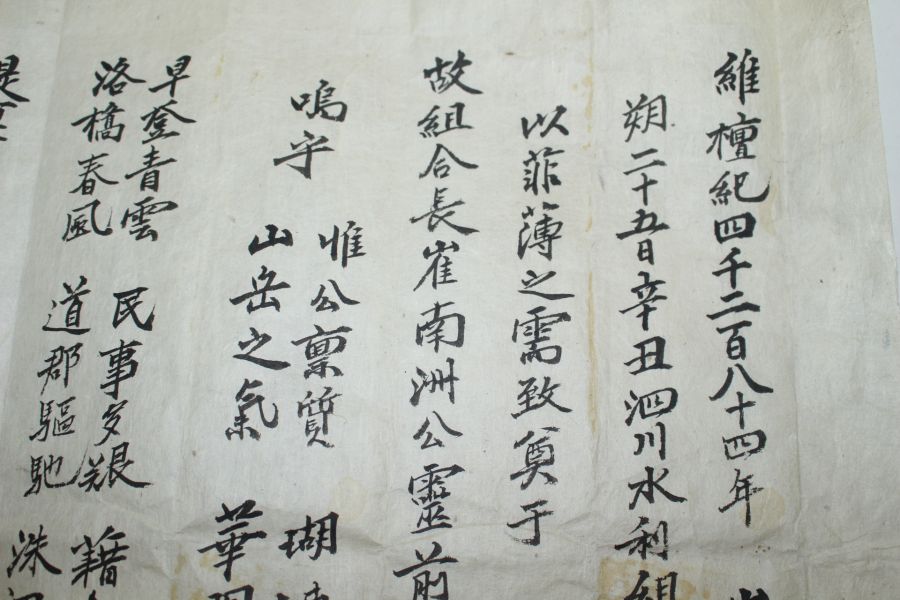 維檀紀四千二百八十四年
朔二十五日辛丑泗川水利組
以菲薄之需致奠于
故組合長崔南洲公靈前
嗚乎 惟公稟質 瑚
山岳之氣 華
早登青雲 民事多艱 藉
洛橋春風 道郡驅馳 洙